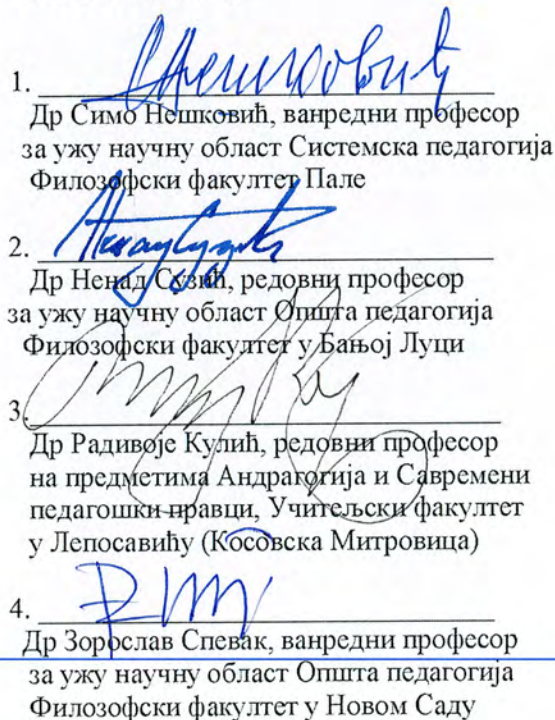 1.
Др Симо Нешковић, ванредни професор
за ужу научну област Системска педагогија
Филозофски факултет Пале
2.
Др Ненад Сузић, редовни професор
за ужу научну област Општа педагогија
Филозофски факултет у Бањој Луци
3.
Др Радивоје Кулић, редовни професор
на предметима Андрагогија и Савремени
педагошки правци, Учитељски факултет
у Лепосавићу (Косовска Митровица)
4.
Др Зорослав Спевак, ванредни професор
за ужу научну област Општа педагогија
Филозофски факултет у Новом Саду